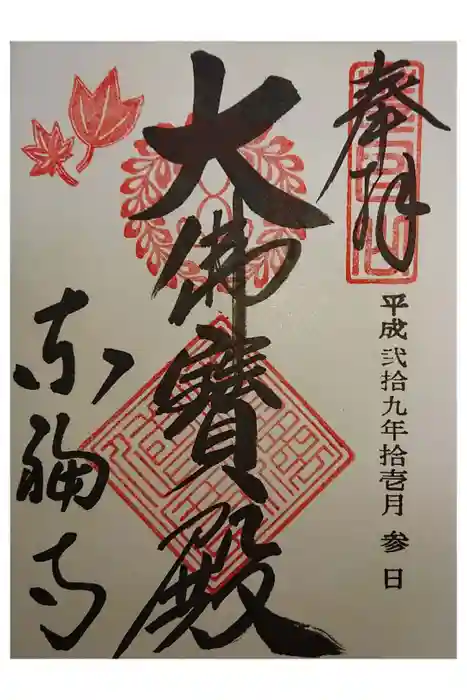 奉拝
平成弐拾九年拾壱月参日
大佛寳殿
東福寺